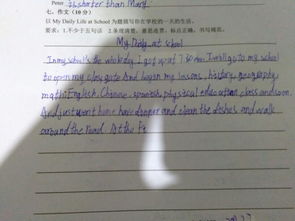 Peter is shorter than Mary.
七、作文（10分）
以 My Daily Life at School 为题描写你在学校的一天的生活。
要求：1.不少于五句话 2.条理清楚，意思连贯，标点正确，书写规范。
My Daily at school
In my school's the whole day. I got up at 7 I will go to my school
to open my class And began my lessons, history, geography
math English, Chinese, spanish, physical education class and soon.
And just went home have dinner and clean the dishes and walk
around the road. At the